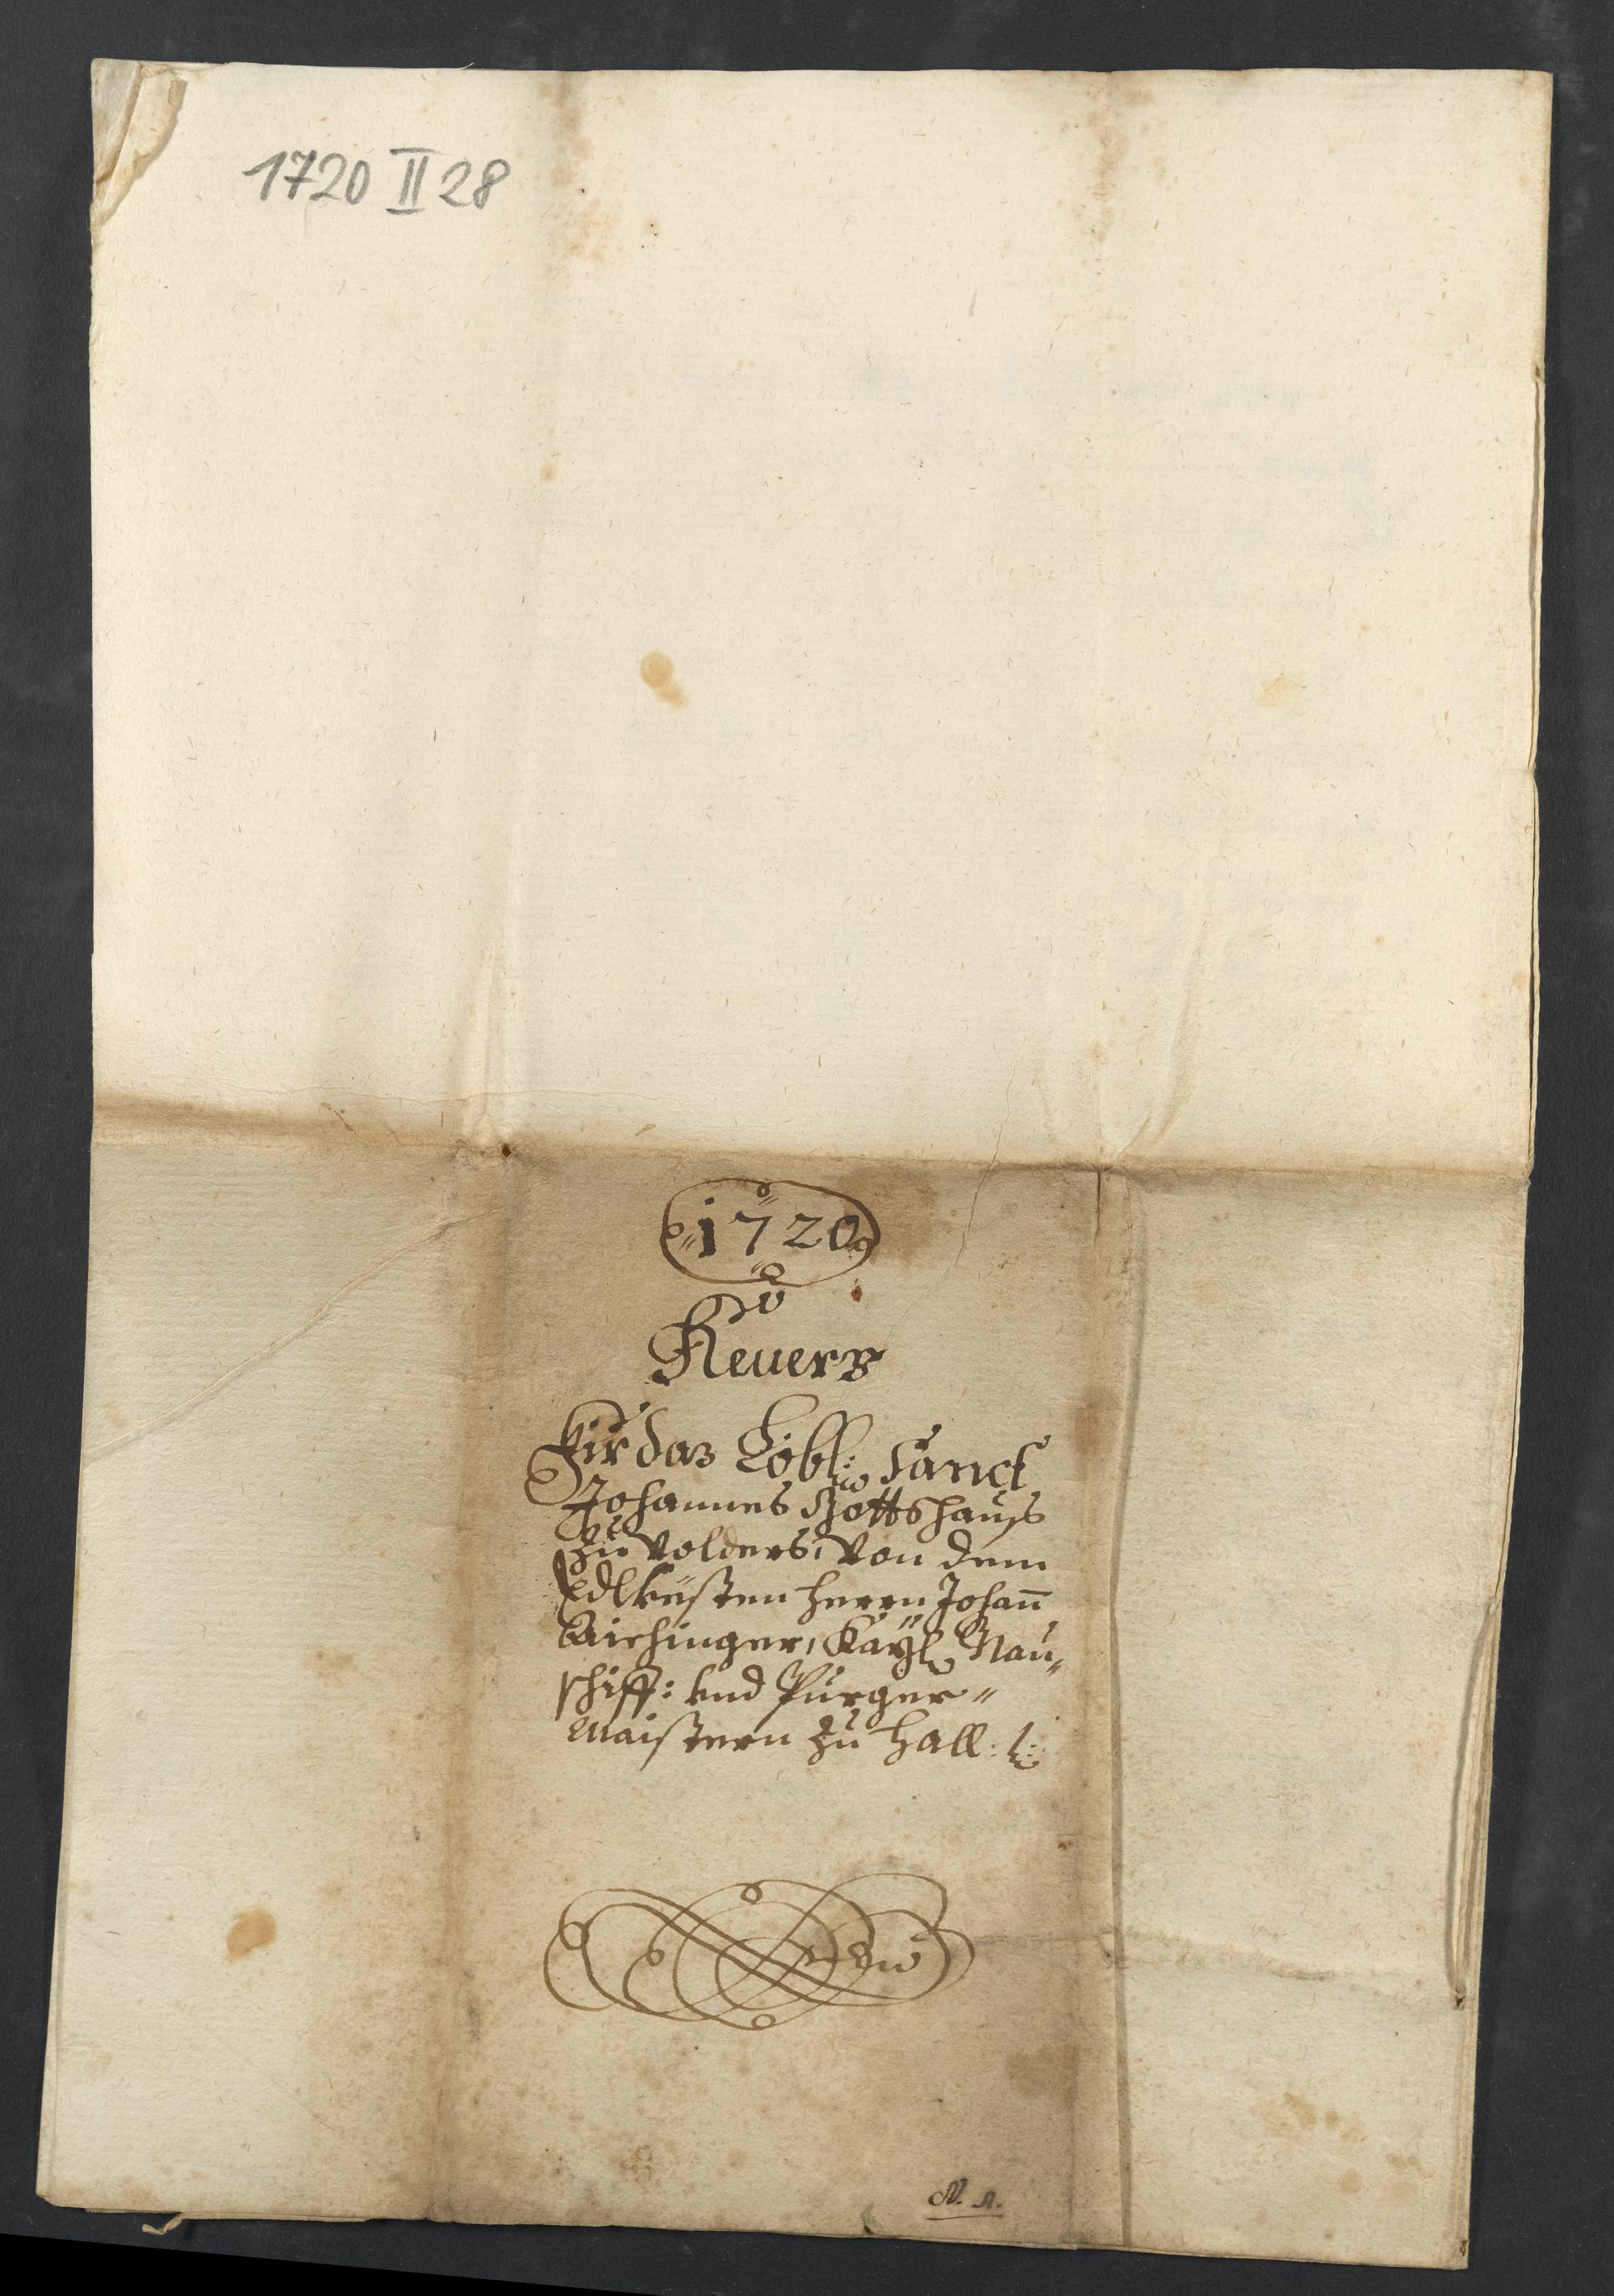 1720 II 28
1720
Reuers
Fir das Löbl: Sanct
Johannes Gottshauß
zu Volders, von dem
Edlvesten Herrn Johan̄
Aichinger, Kaÿl: Nau„
schiff: vnd Purger„
maistern zu Hall: ⁊c:
N. 1.